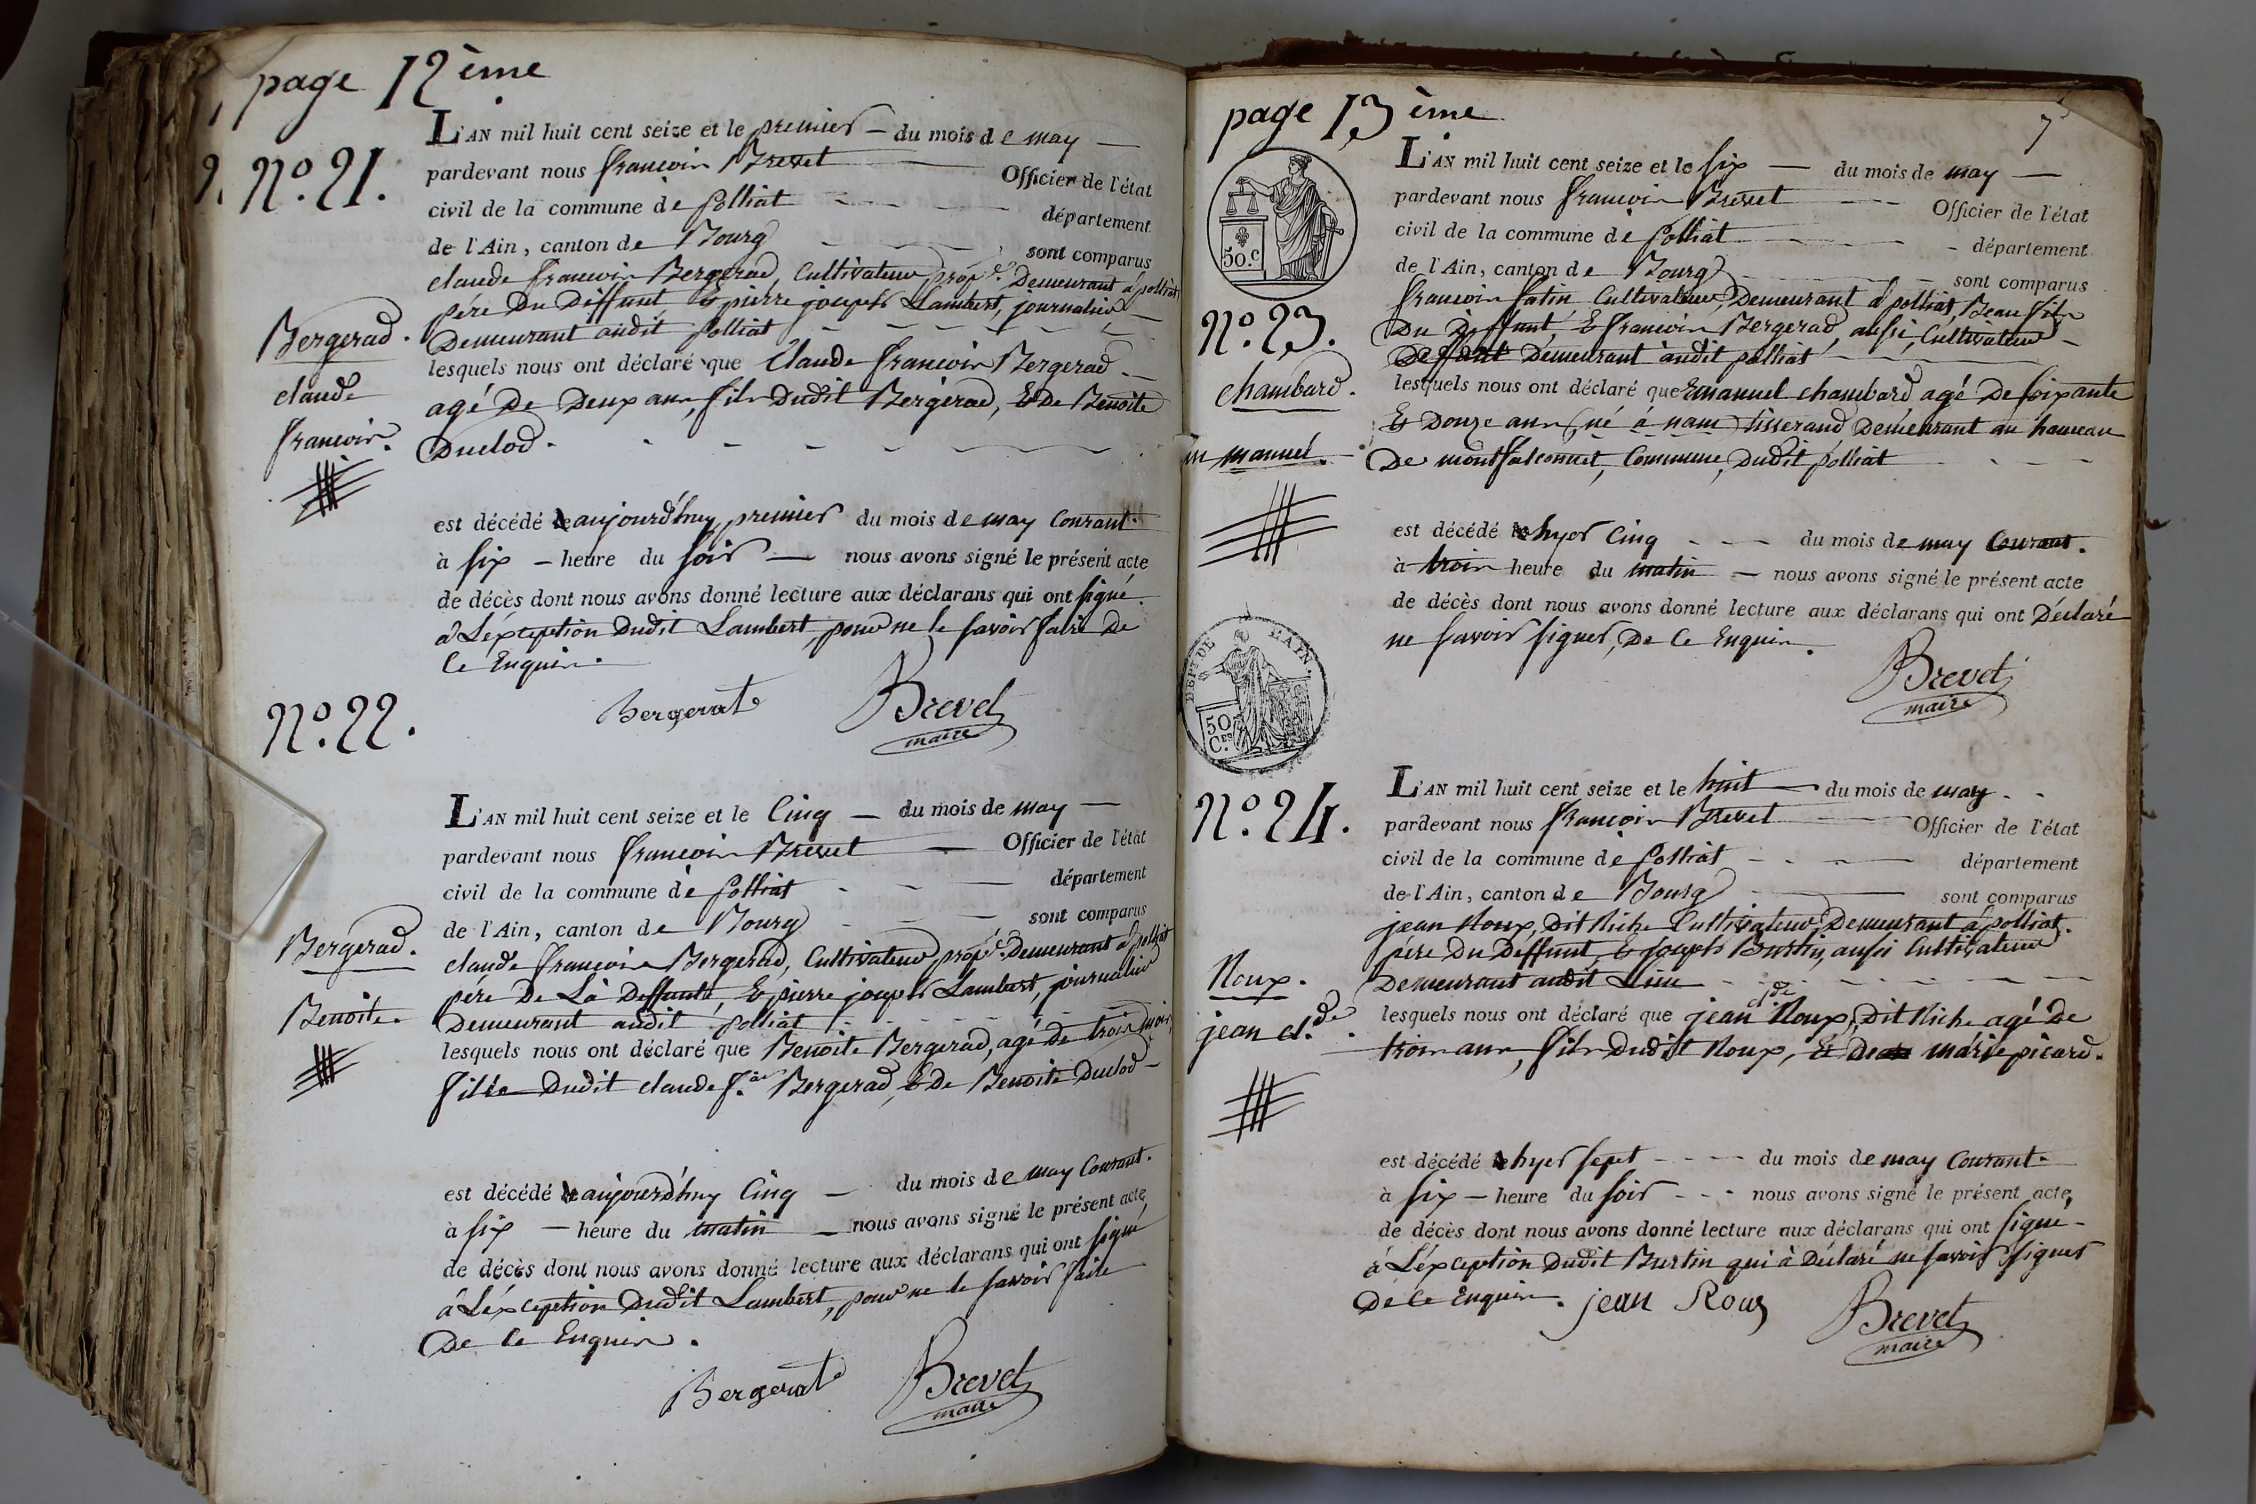 page 12 ème
L'AN mil huit cent seize et le premier du mois de may
N.º 21.
pardevant nous françois Brevet Officier de l'état
civil de la commune de polliat département
de l'Ain, canton de Bourg sont comparus
claude françois Bergerad, Cultivateur prop.re Demeurant à polliat
pére Du Deffunt, Et pierre joseph Lambert, journalier
Demeurant audit polliat
Bergerad.
claude
françois.
lesquels nous ont déclaré que Claude françois Bergerad
agé De Deux ans, fils Dudit Bergerad, Et De Benoite
Duclod.
est décédé le aujourd'huy premier du mois de may Courant.
à six heure du soir nous avons signé le présent acte
de décès dont nous avons donné lecture aux déclarans qui ont signé
à L'éxception Dudit Lambert, pour ne le savoir faire De
Ce Enquis.
Bergerat Brevet
maire
N.º 22.
L'AN mil huit cent seize et le Cinq du mois de may
pardevant nous françois Brevet Officier de l'état
civil de la commune de polliat département
de l'Ain, canton de Bourg sont comparus
Bergerad.
Benoite.
claude françois Bergerad, Cultivateur prop.re Demeurant à polliat
pére De La Deffunte, Et pierre joseph Lambert, journalier
Demeurant audit polliat
lesquels nous ont déclaré que Benoite Bergerad, agé De trois mois,
fille Dudit claude f.ois Bergerad, Et De Benoite Duclod
est décédé le aujourd'huy Cinq du mois de may Courant.
à six heure du matin nous avons signé le présent acte
de décès dont nous avons donné lecture aux déclarans qui ont signé
à L'éxception Dudit Lambert, pour ne le savoir faire
De Ce Enquis.
Bergerat Brevet
maire
page 13 ème
7
L'AN mil huit cent seize et le six du mois de may
pardevant nous françois Brevet Officier de l'état
civil de la commune de polliat département
de l'Ain, canton de Bourg sont comparus
50.c
N.º 23.
chambard.
manuel.
françois Cultivateur, Demeurant à polliat, Beau fils
Du Deffunt, Et françois Bergerad, aussi, Cultivateur
Demeurant audit polliat
lesquels nous ont déclaré que Emanuel chambard agé De soixante
Et Douze ans (né à nam) tisserand Demeurant au hameau
De montfalconnet, Commune, Dudit polliat
est décédé le hyer Cinq du mois de may Courant.
à trois heure du matin nous avons signé le présent acte
de décès dont nous avons donné lecture aux déclarans qui ont Déclaré
ne savoir signer, De Ce Enquis.
Brevet
maire
DEP.T DE L'AIN.
50 C.es
N.º 24.
L'AN mil huit cent seize et le huit du mois de may
pardevant nous françois Brevet Officier de l'état
civil de la commune de polliat département
de l'Ain, canton de Bourg sont comparus
Roux.
jean cl.de
jean Roux, Dit Riche Cultivateur, Demeurant à polliat.
pére Du Deffunt, Et joseph Burtin, aussi Cultivateur
Demeurant audit Lieu
lesquels nous ont déclaré que jean cl.de Roux, Dit Riche agé De
trois ans, fils Dudit Roux, Et De marie picard.
est décédé le hyer sept du mois de may Courant.
à six heure du soir nous avons signé le présent acte
de décès dont nous avons donné lecture aux déclarans qui ont signé
à L'éxception Dudit Burtin qui à Déclaré ne savoir signer
De Ce Enquis. jean Roux Brevet
maire